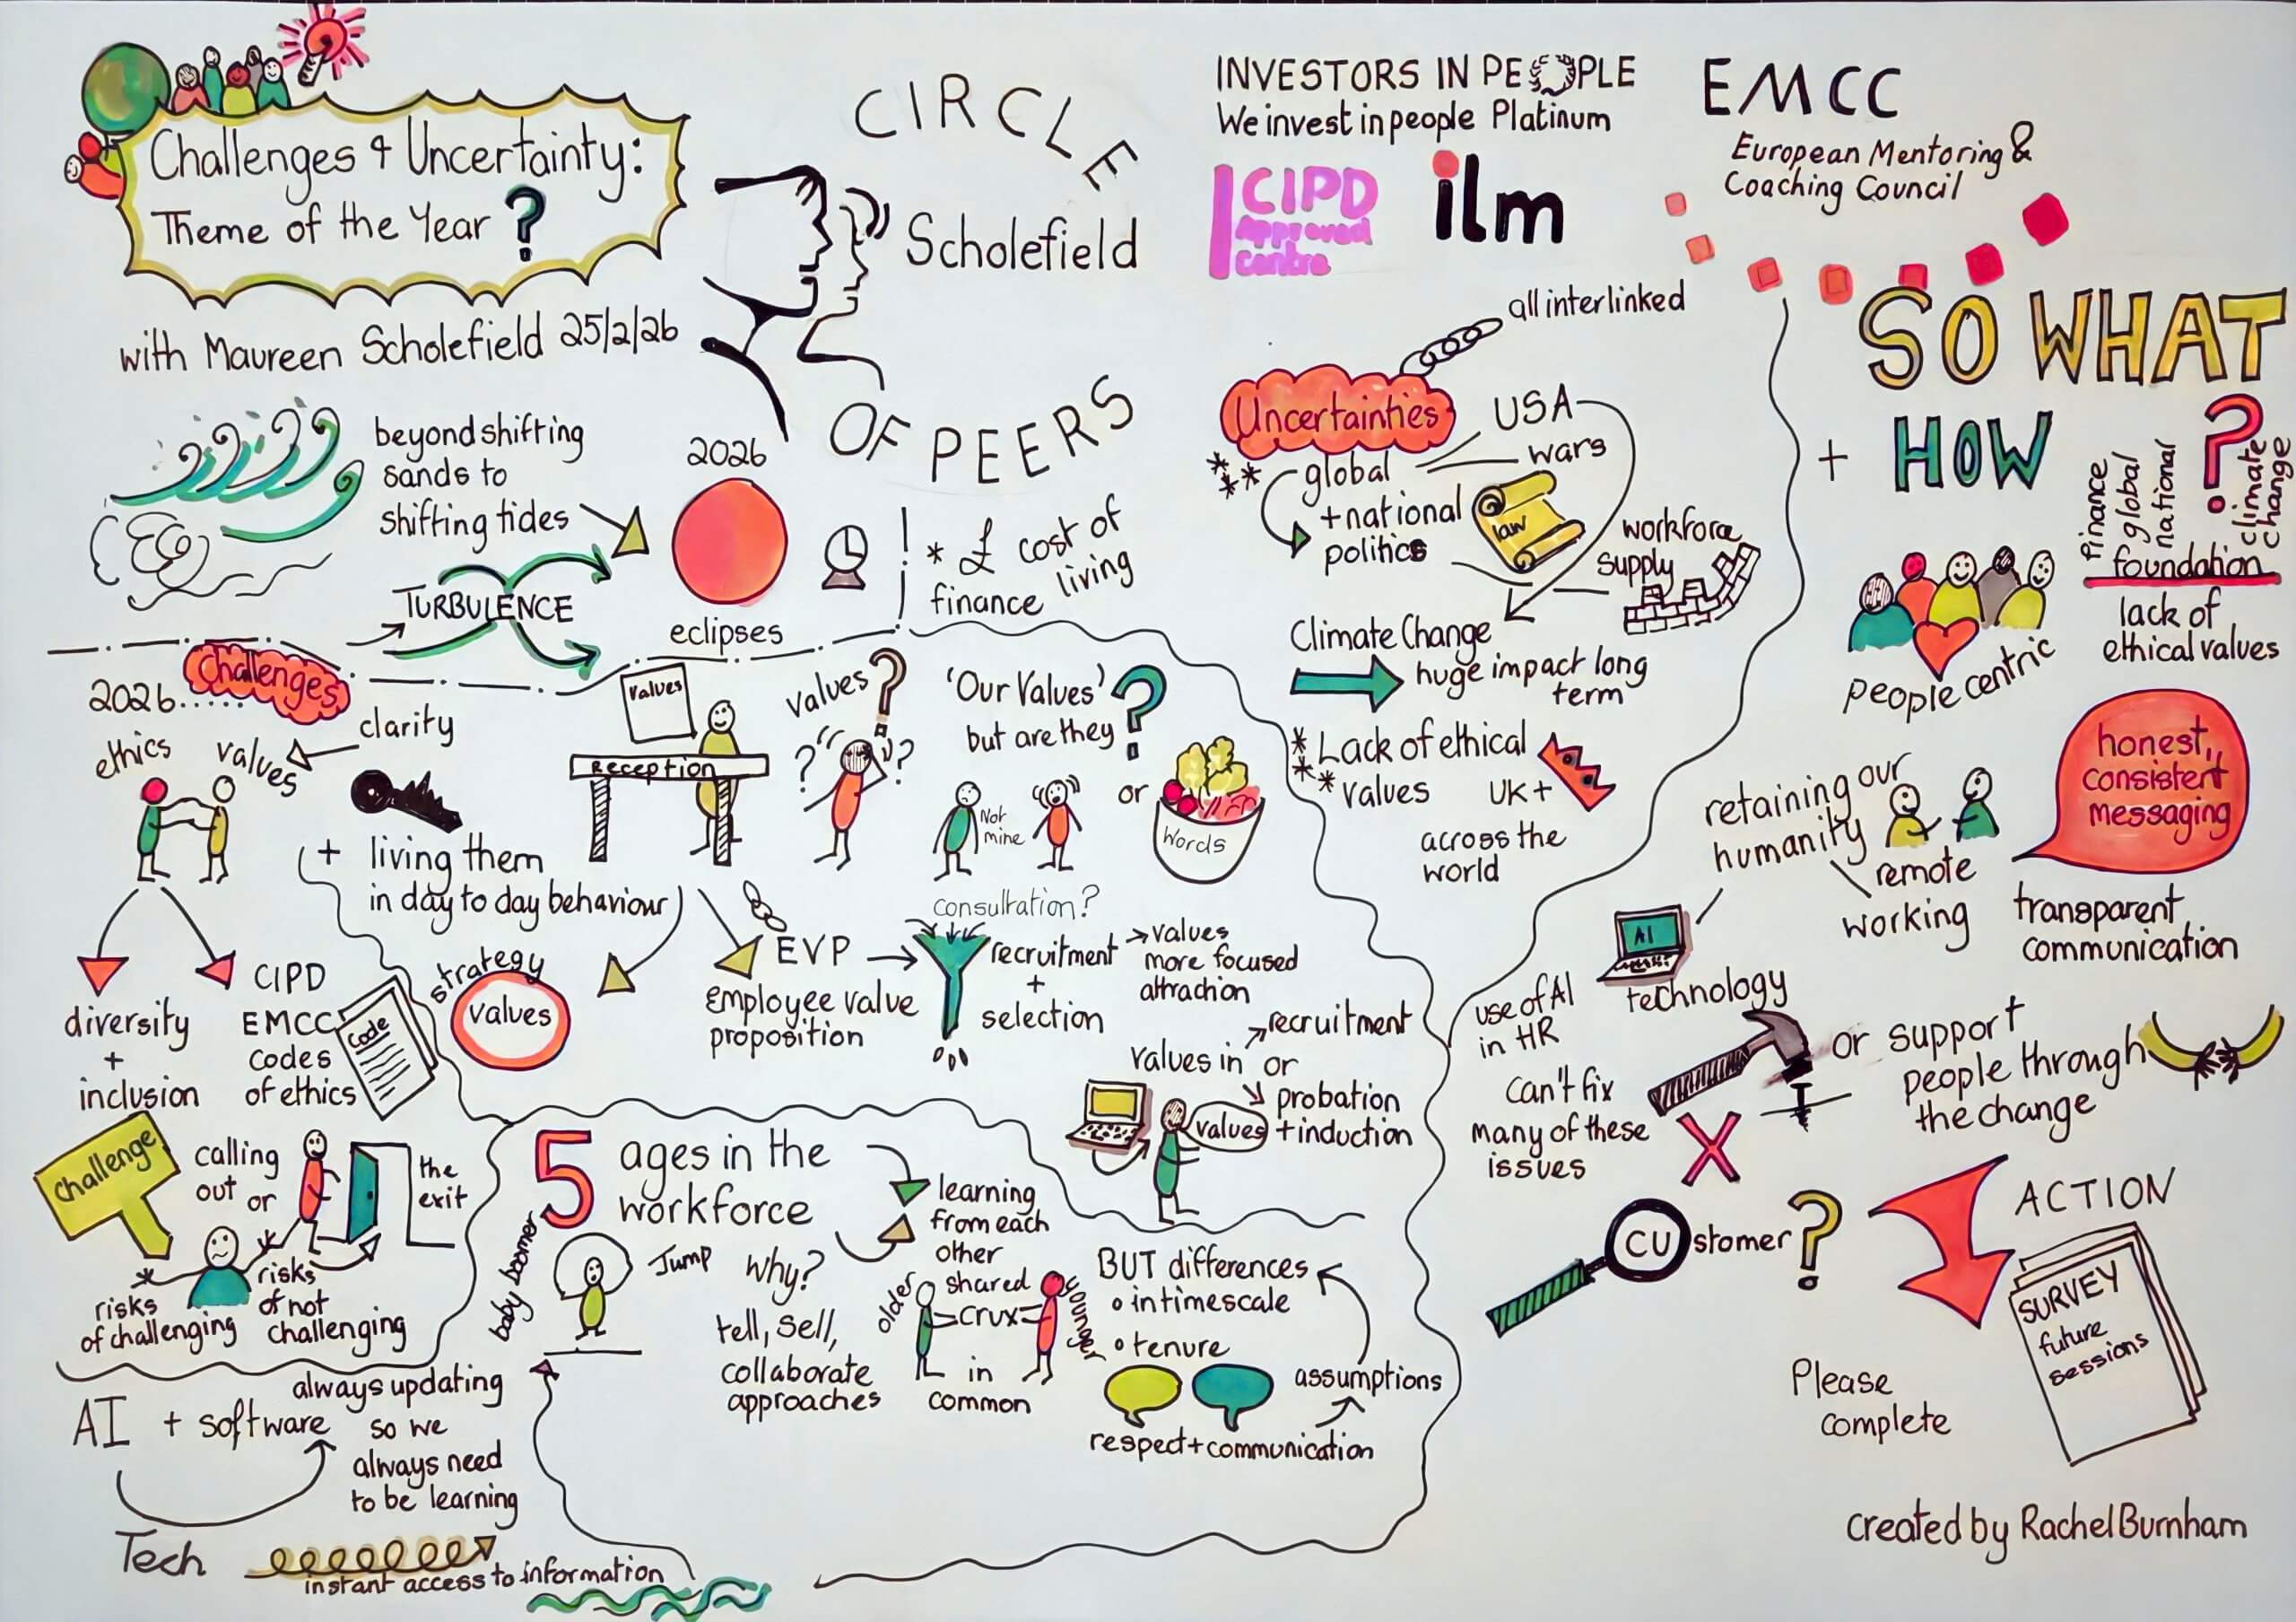 Challenges & Uncertainty:
Theme of the Year ?
with Maureen Scholefield 25/2/26
CIRCLE
Scholefield
OF PEERS
INVESTORS IN PEOPLE
We invest in people Platinum
CIPD
Approved
Centre
ilm
EMCC
European Mentoring &
Coaching Council
beyond shifting
sands to
shifting tides
TURBULENCE
2026
eclipses
!
* £ cost of
living
finance
all interlinked
Uncertainties
USA
wars
global
+ national
politics
law
workforce
supply
Climate Change
huge impact long
term
* Lack of ethical
* * values
UK +
across the
world
2026.....
Challenges
clarity
ethics
values
+ living them
in day to day behaviour
diversity
+
inclusion
CIPD
EMCC
codes
of ethics
Code
Challenge
calling
out or
the
exit
risks
of challenging
risks
of not
challenging
values
Reception
values?
? ?
'Our Values' ?
but are they
Not
mine
or
Words
strategy
values
EVP
employee value
proposition
consultation?
recruitment
+
selection
values
more focused
attraction
values in or
recruitment
probation
+ induction
values
5 ages in the
workforce
baby boomer
Jump
Why?
tell, sell,
collaborate
approaches
learning
from each
other
older
shared
crux
in
common
younger
BUT differences
• in timescale
• tenure
assumptions
respect + communication
AI + software
always updating
so we
always need
to be learning
Tech
instant access to information
SO WHAT
+ HOW ?
finance
global
national
climate
change
foundation
lack of
ethical values
people centric
honest,
consistent
messaging
transparent
communication
retaining our
humanity
remote
working
AI
technology
use of AI
in HR
can't fix
many of these
issues
X
or support
people through
the change
CUstomer ?
ACTION
SURVEY
future
sessions
Please
complete
created by Rachel Burnham